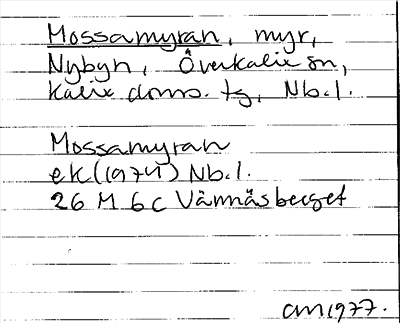 Mossamyran, myr,
Nybyn, Överkalix sn,
Kalix doms. tg, Nb.l.
Mossamyran
ek(1974) Nb.l.
26 M 6c Vännäsberget
am1977.